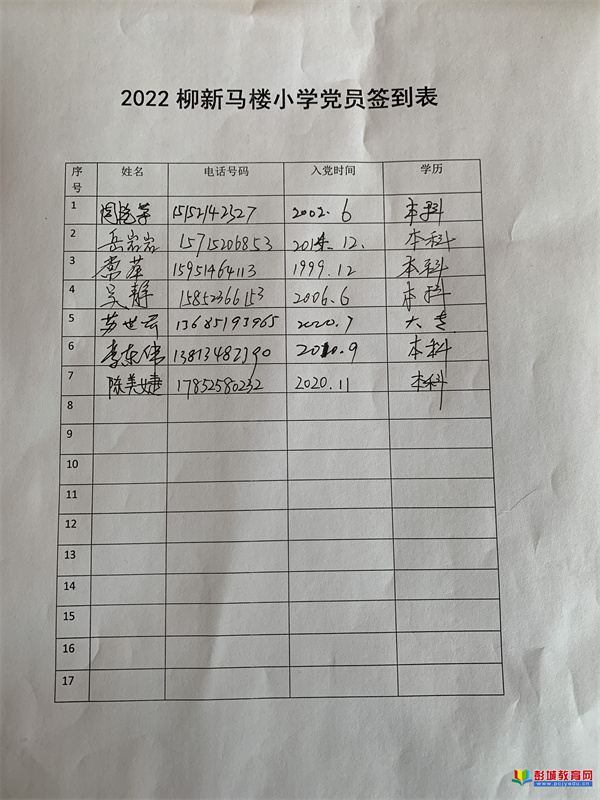 2022 柳新马楼小学党员签到表
序号 姓名 电话号码 入党时间 学历
1 15152142327 2002.6 本科
2 岳岩岩 15715206853 12. 本科
3 15951464113 1999.12 本科
4 吴静 2006.6 本科
5 苏世云 13685193965 2020.7 大专
6 李东伟 9 本科
7 陈美婕 17852580232 2020.11 本科
8
9
10
11
12
13
14
15
16
17
彭城教育网
www.pcjyedu.cn